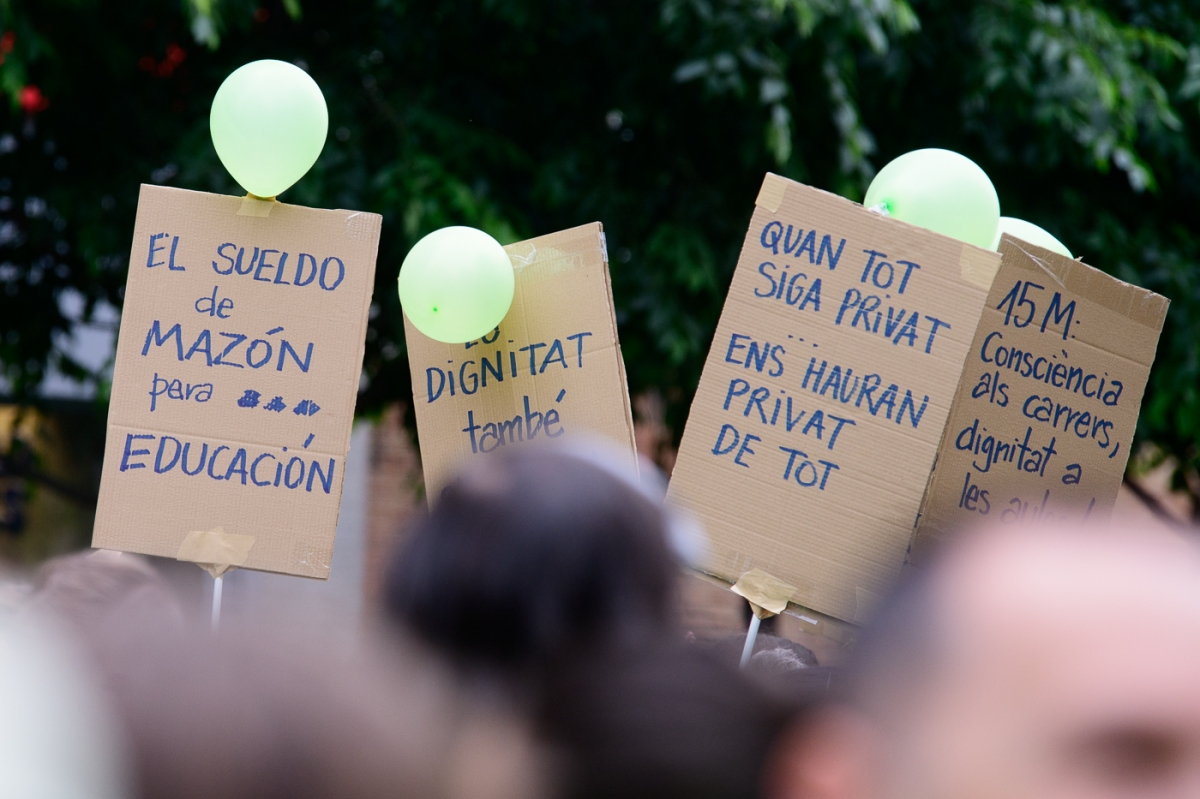 EL SUELDO
de
MAZÓN
pera
EDUCACIÓN
DIGNITAT
també
QUAN TOT
SIGA PRIVAT
...
ENS HAURAN
PRIVAT
DE TOT
15M:
Consciència
als carrers,
dignitat a
les